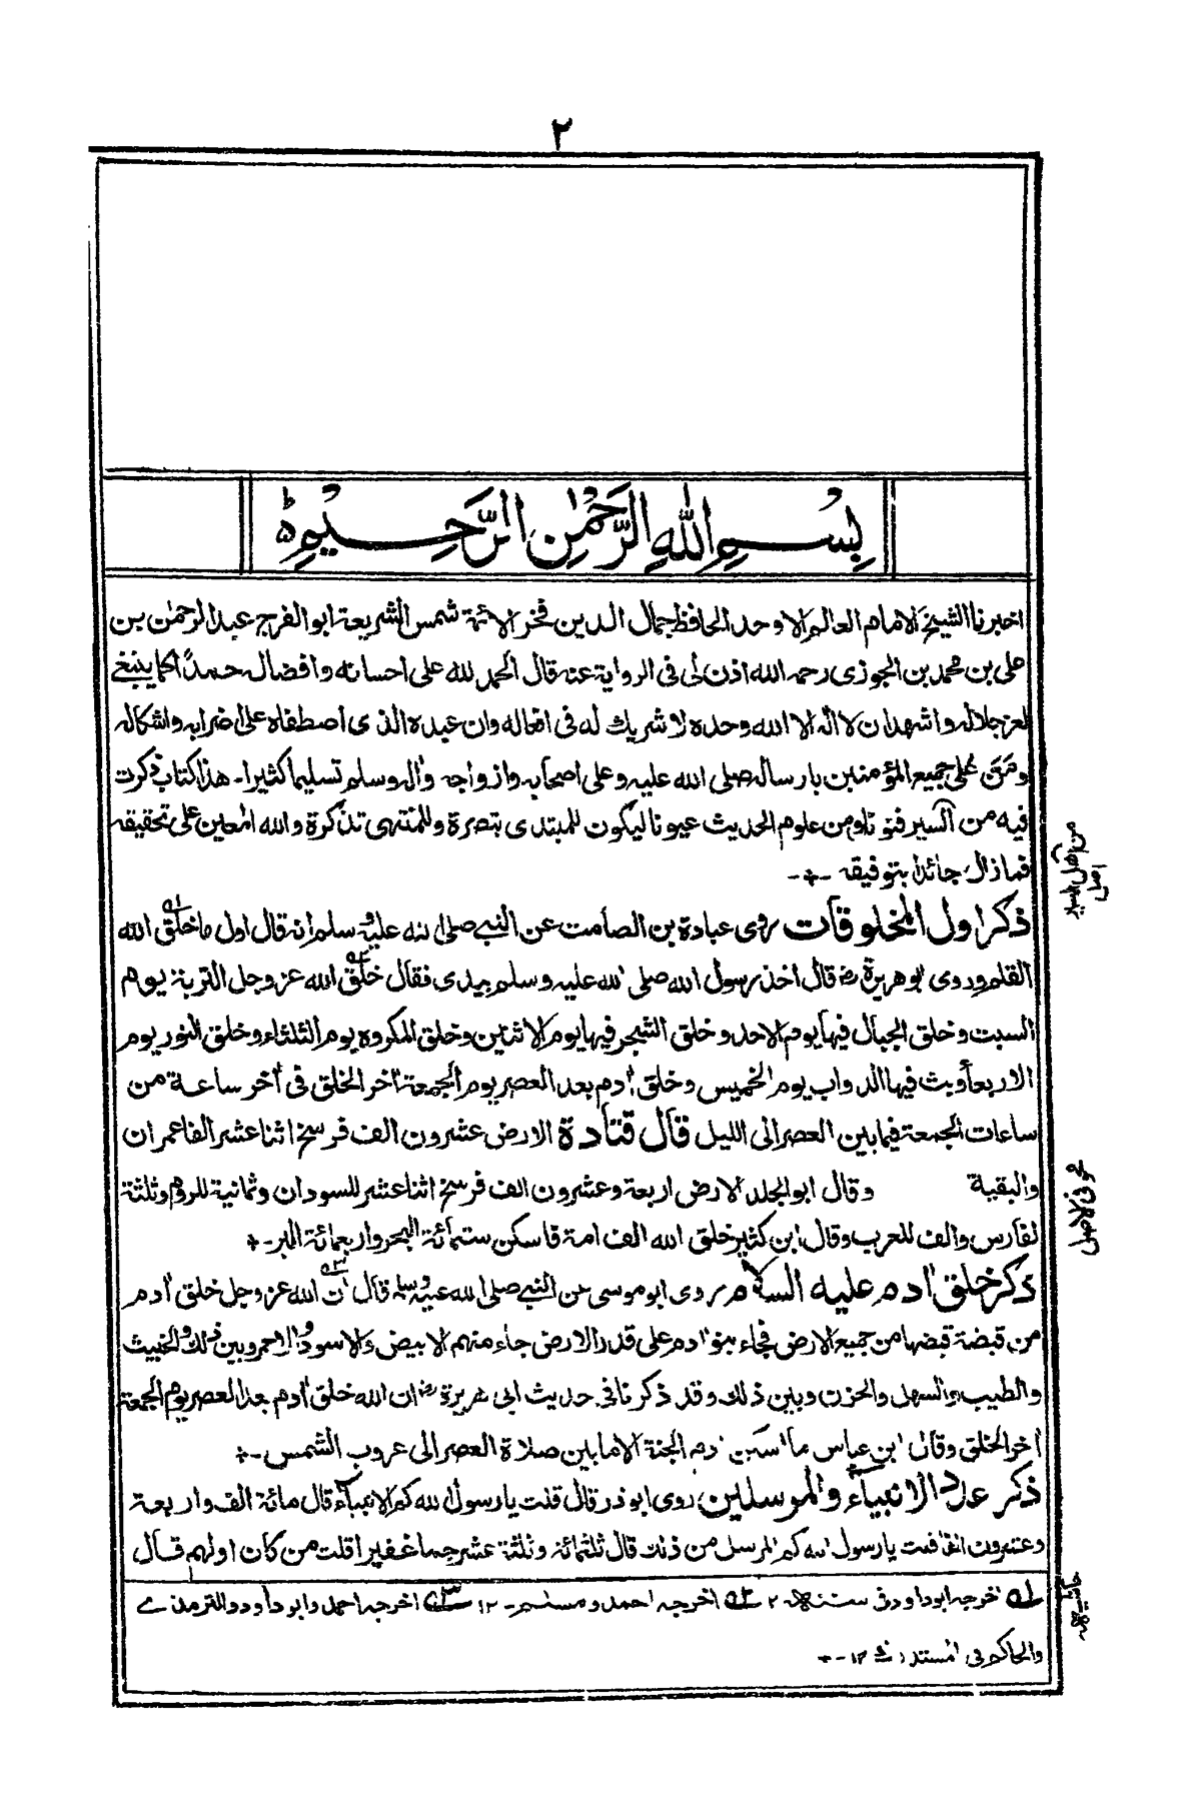 ٢
بِسْمِ اللهِ الرَّحْمٰنِ الرَّحِيْمِ ط
اخبرنا الشيخ الامام العالم الاوحد الحافظ جمال الدين فخر الائمة شمس الشريعة ابو الفرج عبد الرحمٰن بن
على بن محمد بن الجوزى رحمه الله اذن لى فى الرواية عنه قال الحمد لله على احسانه وافضاله حمدًا كما ينبغى
لعز جلاله واشهد ان لا اله الا الله وحده لا شريك له فى افعاله وان عبده الذى اصطفاه على اضرابه واشكاله
ومَنَّ على جميع المؤمنين بارساله صلى الله عليه وعلى اصحابه وازواجه واٰله وسلم تسليما كثيرا۔ هذا كتاب ذكرت
فيه من السير فنونا ومن علوم الحديث عيونا ليكون للمبتدى تبصرة وللمنتهى تذكرة والله المعين على تحقيقه
فما زال جائدا بتوفيقه -٭-
ذكر اول المخلوقات روى عبادة بن الصامت عن النبى صلى الله عليه وسلم انه قال اول ما خلق الله
القلم وروى ابو هريرة رض قال اخذ رسول الله صلى الله عليه وسلم بيدى فقال خلق الله عز وجل التربة يوم
السبت وخلق الجبال فيها يوم الاحد وخلق الشجر فيها يوم الاثنين وخلق المكروه يوم الثلثاء وخلق النور يوم
الاربعأ وبث فيها الدواب يوم الخميس وخلق اٰدم بعد العصر يوم الجمعة اٰخر الخلق فى اٰخر ساعة من
ساعات الجمعة فيما بين العصر الى الليل قال قتادة الارض عشرون الف فرسخ اثنا عشر الفا عمران
والبقية وقال ابو الجلد الارض اربعة وعشرون الف فرسخ اثنا عشر للسودان وثمانية للروم وثلثة
لفارس والف للعرب وقال ابن كثير خلق الله الف امة فاسكن ستمائة البحر واربعمائة البر-٭
ذكر خلق اٰدم عليه السلام روى ابو موسى عن النبى صلى الله عليه وسلم قال ان الله عز وجل خلق اٰدم
من قبضة قبضها من جميع الارض فجاء بنو اٰدم على قدر الارض جاء منهم الابيض والاسود والاحمر وبين ذلك والخبيث
والطيب والسهل والحزن وبين ذلك وقد ذكرنا فى حديث ابى هريرة رض ان الله خلق اٰدم بعد العصر يوم الجمعة
اٰخر الخلق وقال ابن عباس ما اسكن اٰدم الجنة الا ما بين صلاة العصر الى غروب الشمس-٭
ذكر عدد الانبياء والمرسلين روى ابو ذر قال قلت يا رسول الله كم الانبياء قال مائة الف واربعة
وعشرون الفا قلت يا رسول الله كم المرسل من ذلك قال ثلثمائة وثلثة عشر جما غفيرا قلت من كان اولهم قال
١ه اخرجه ابو داود فى سننه ١٢ ٢ه اخرجه احمد ومسلم-١٢ ٣ه اخرجه احمد وابو داود والترمذى
والحاكم فى المستدرك ١٢-٭
من اهل السير
اصلى
محو فى الاصل